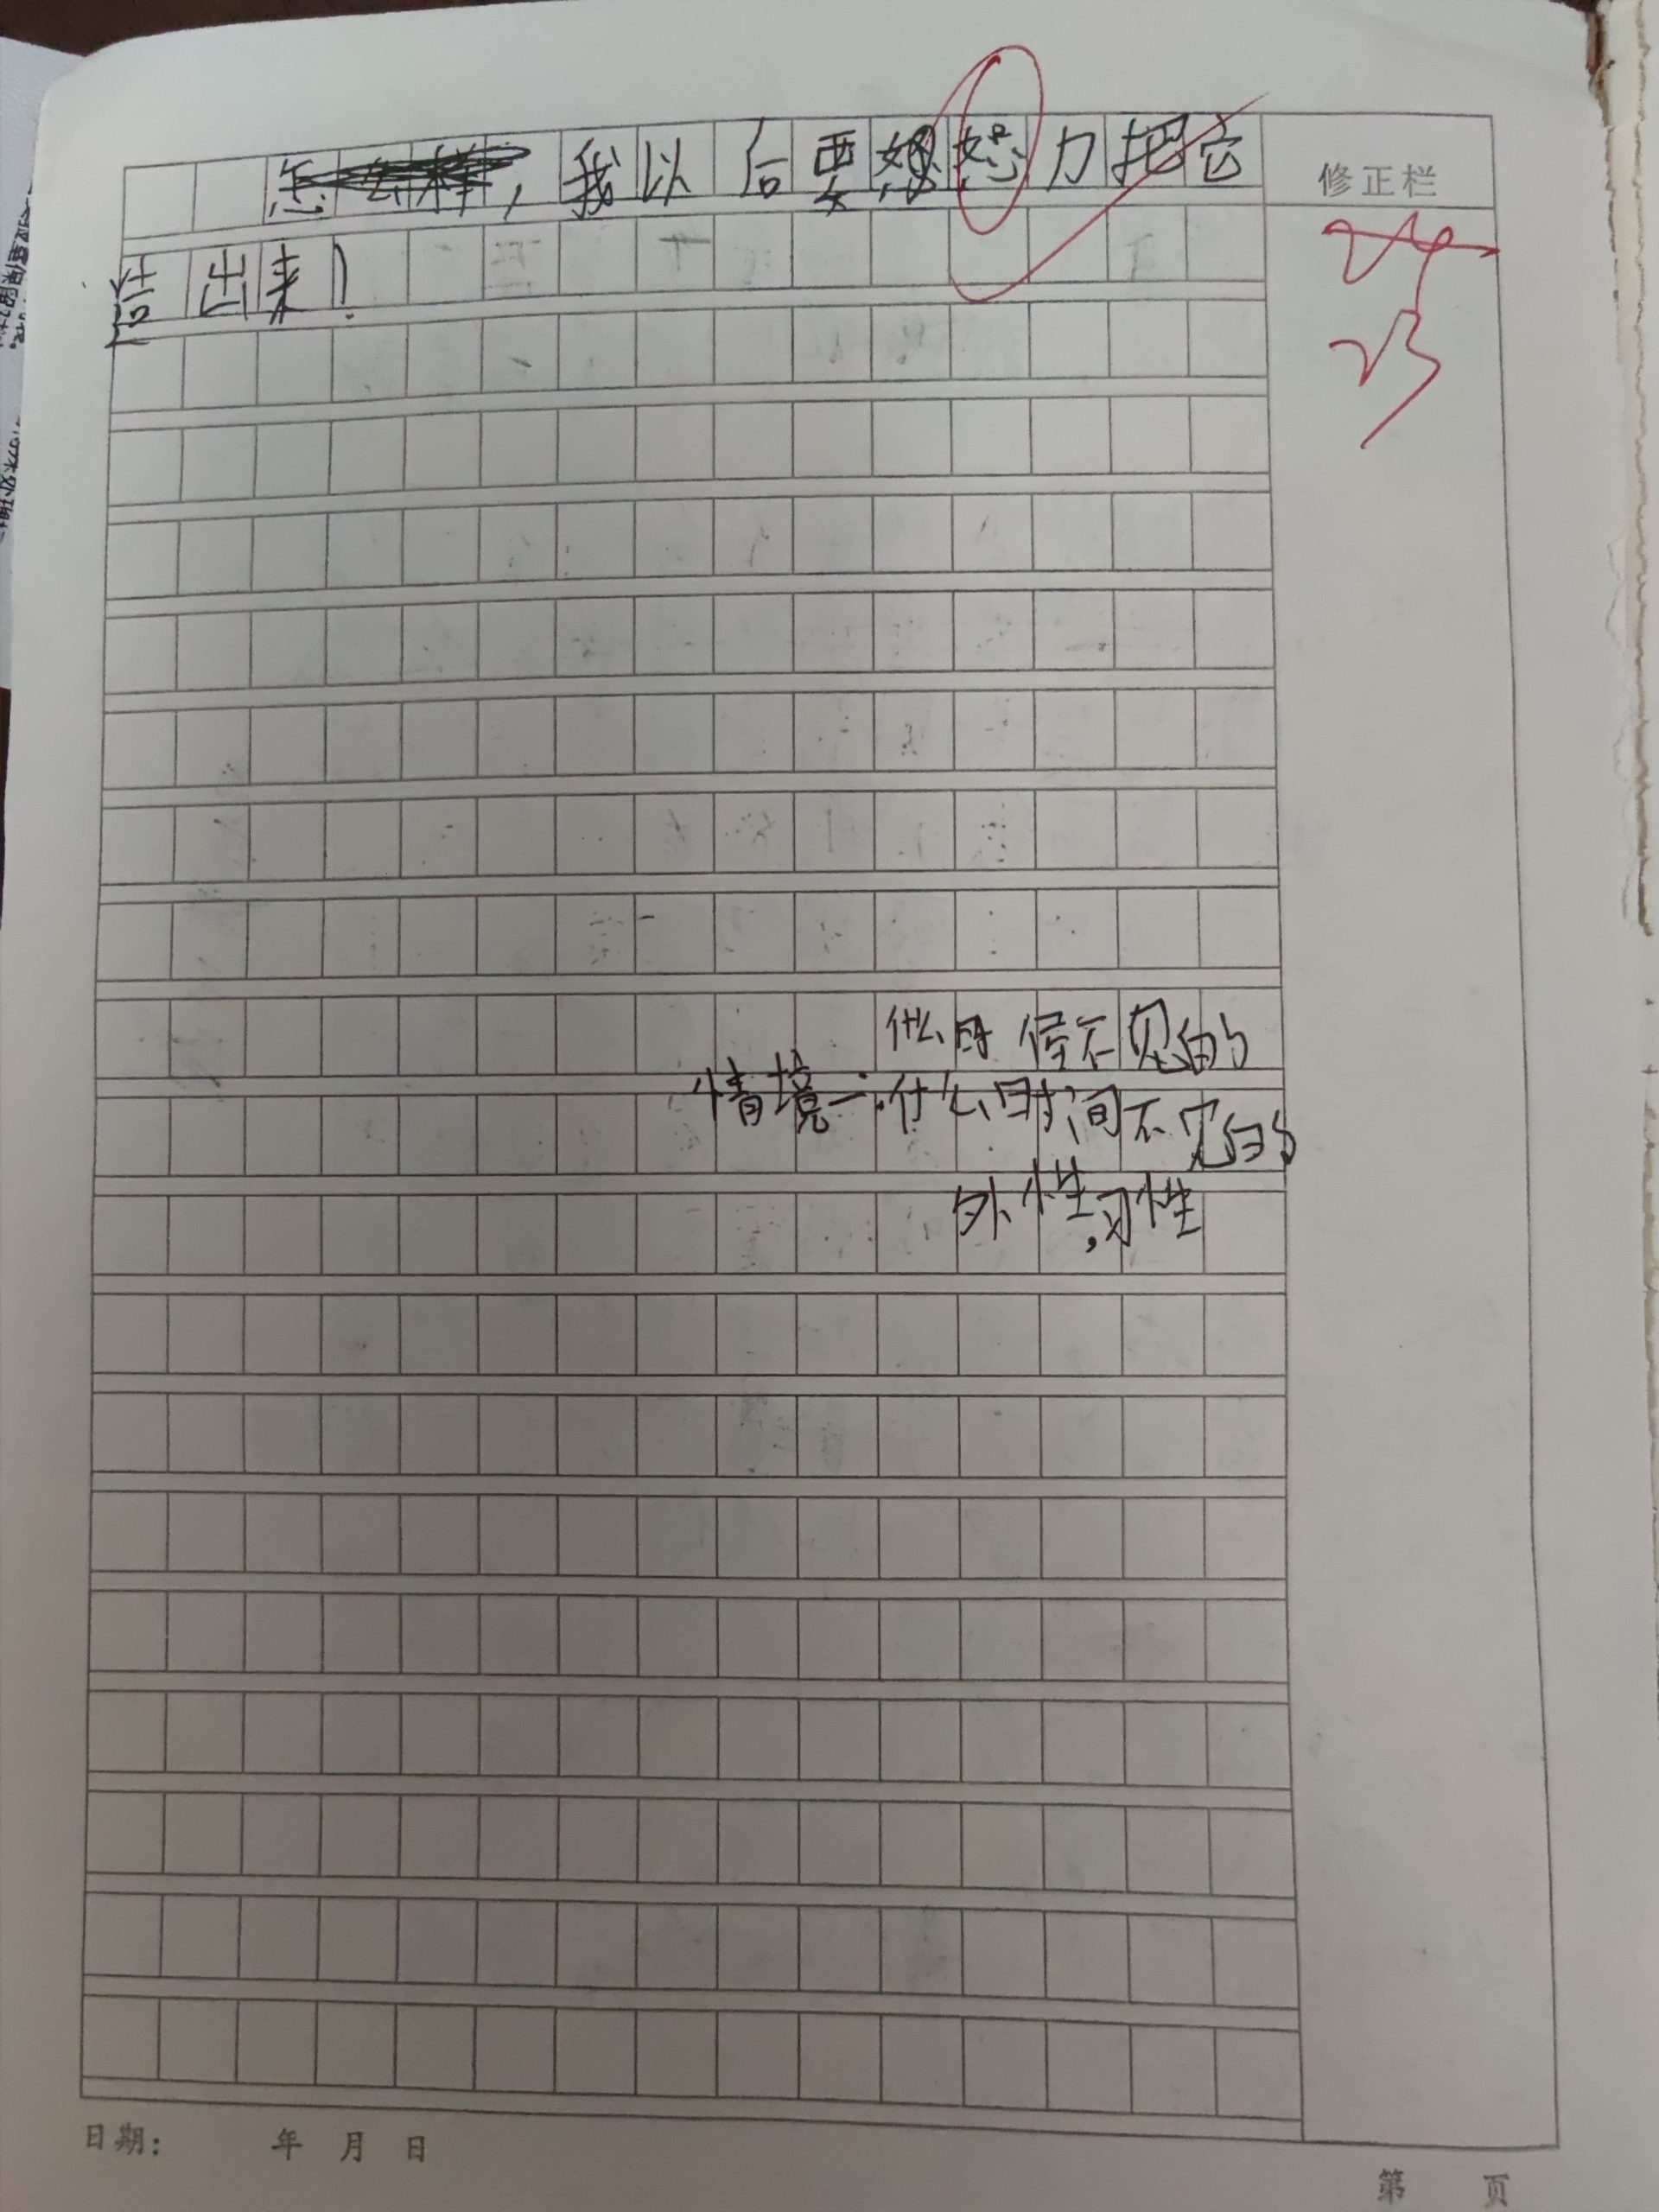 怎么样，我以后要怒力把它 修正栏
结出来！
什么时候不见的
情境一：什么时间不见的
外性，习性
日期： 年 月 日
第 页